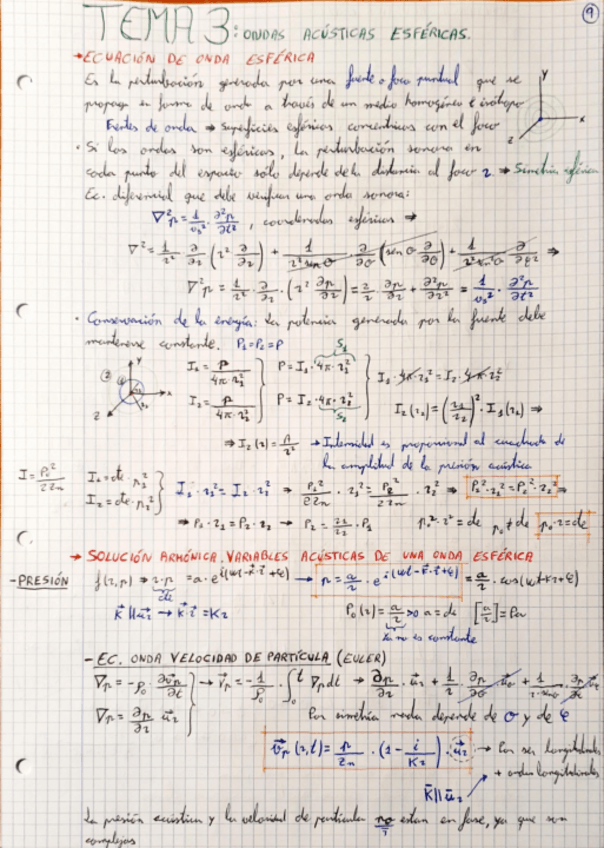 9
TEMA 3: ONDAS ACÚSTICAS ESFÉRICAS.
→ ECUACIÓN DE ONDA ESFÉRICA
Es la perturbación generada por una fuente o foco puntual que se
propaga en forma de onda a través de un medio homogéneo e isótropo
Frentes de onda ⇒ Superficies esféricas concéntricas con el foco
· Si las ondas son esféricas, la perturbación sonora en
cada punto del espacio sólo depende de la distancia al foco r. ⇒ Simetría esférica
Ec. diferencial que debe verificar una onda sonora:
∇²p = 1/v_s² · ∂²p/∂t² , coordenadas esféricas ⇒
∇² = 1/r² ∂/∂r (r² ∂/∂r) + 1/r² sen θ · ∂/∂θ (sen θ ∂/∂θ) + 1/r² sen² θ ∂/∂φ² ⇒
∇²p = 1/r² · ∂/∂r · (r² ∂p/∂r) = 2/r ∂p/∂r + ∂²p/∂r² = 1/v_s² · ∂²p/∂t²
· Conservación de la energía: La potencia generada por la fuente debe
mantenerse constante. P₁=P₂=P
I₁ = P/4π·r₁² P = I₁·4π·r₁² S₁ I₁·4π·r₁² = I₂·4π·r₂²
I₂ = P/4π·r₂² P = I₂·4π·r₂² S₂ I₂(r₂) = (r₁/r₂)² · I₁(r₁) ⇒
⇒ I₂(r) = A/r² → Intensidad es proporcional al cuadrado de
la amplitud de la presión acústica
I = P₀²/2Z_n I₁ = cte·p₁² I₂ = cte·p₂² I₁·r₁² = I₂·r₂² → P₁²/2Z_n · r₁² = P₂²/2Z_n · r₂² ⇒ P₁²·r₁² = P₂²·r₂² ⇒
⇒ P₁·r₁ = P₂·r₂ → P₂ = r₁/r₂ · P₁ p₀²·r² = cte p₀ ≠ cte p₀·r = cte
→ SOLUCIÓN ARMÓNICA. VARIABLES ACÚSTICAS DE UNA ONDA ESFÉRICA
- PRESIÓN f(r,p) ⇒ r·p = a·e^i(ωt-k·r+φ) → p = a/r · e^i(ωt-k·r+φ) = a/r · cos(ωt-kr+φ)
cte
k ∥ u_r → k·r = Kr P₀(r) = a/r ⇒ a = cte [a/r] = Pa
ya no es constante
- EC. ONDA VELOCIDAD DE PARTÍCULA (EULER)
∇p = -ρ₀ · ∂v_p/∂t → v_p = -1/ρ₀ · ∫₀ᵗ ∇p dt → ∂p/∂r · u_r + 1/r · ∂p/∂θ u_θ + 1/r·sen θ · ∂p/∂φ u_φ
∇p = ∂p/∂r u_r Por simetría nada depende de θ y de φ
v_p (r,t) = p/Z_n · (1 - i/Kr) · u_r → Por ser longitudinales
K ∥ u_r → ondas longitudinales
La presión acústica y la velocidad de partícula no están en fase, ya que son
complejas